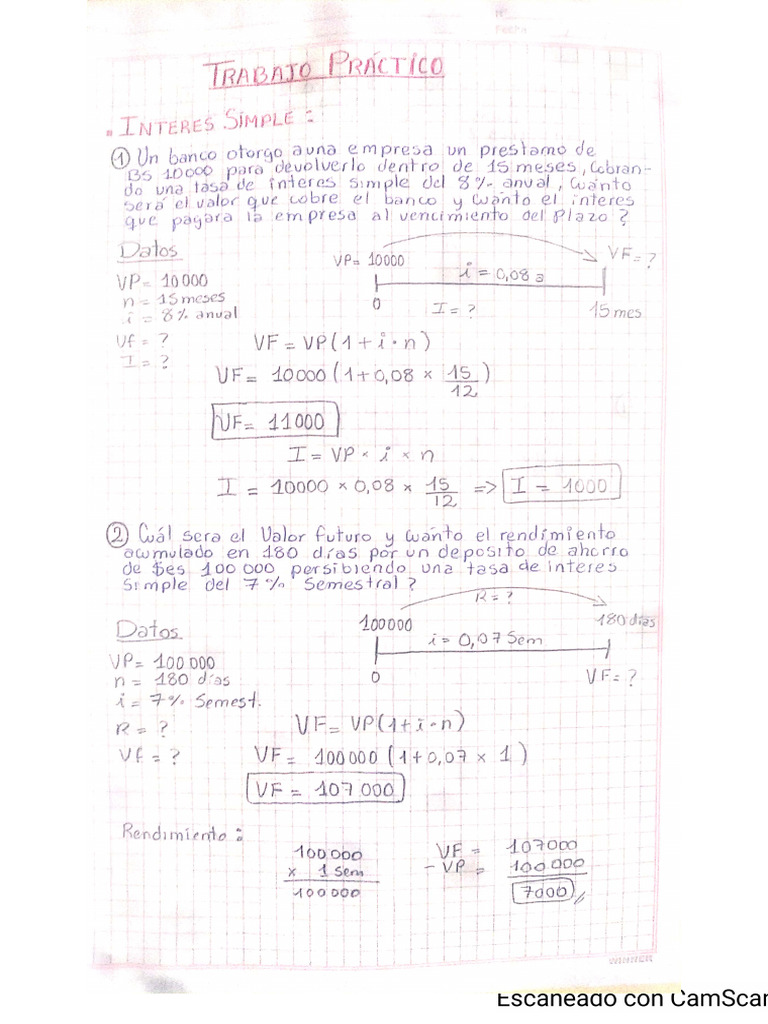 N°
Fecha
TRABAJO PRÁCTICO
. INTERES SIMPLE :
① Un banco otorgo a una empresa un prestamo de
BS 10000 para devolverlo dentro de 15 meses, Cobran-
do una tasa de interes simple del 8% anual, Cuánto
será el valor que cobre el banco y cuánto el interes
que pagara la empresa al vencimiento del Plazo ?
Datos
VP= 10000
n = 15 meses
i = 8% anual
Vf = ?
I = ?
VP= 10000
VF= ?
i = 0,08 a
0
I = ?
15 mes
VF = VP(1+i·n)
VF= 10000(1+0,08 × 15/12)
VF= 11000
I = VP × i × n
I = 10000 × 0,08 × 15/12 => I = 1000
② Cuál sera el Valor futuro y cuánto el rendimiento
acumulado en 180 días por un deposito de ahorro
de $es 100 000 persibiendo una tasa de interes
Simple del 7% Semestral ?
Datos
VP= 100 000
n = 180 días
i = 7% Semest.
R = ?
Vf = ?
R = ?
100000
180 días
i = 0,07 Sem
0
VF = ?
VF = VP(1+i·n)
VF = 100000 (1+0,07 × 1)
VF = 107 000
Rendimiento :
100 000
x 1 Sem
100 000
VF = 107000
- VP = 100 000
7000
WINNER
Escaneado con CamScan